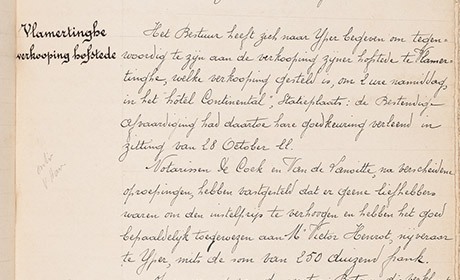 Vlamertinghe
verkooping hofstede
Het Bestuur heeft zich naar Yper begeven om tegen-
woordig te zijn aan de verkooping zijner hofstede te Vlamer-
tinghe, welke verkooping gesteld is, om 2 ure namiddag,
in het "hôtel Continental", Statieplaats: de Bestendige
Afvaardiging had daartoe hare goedkeuring verleend in
zitting van 28 October ll.
Notarissen De Cock en Van de Lanoitte, na verscheidene
oproepingen, hebben vastgesteld dat er geene liefhebbers
waren om den instelprijs te verhoogen en hebben het goed
bepaaldelijk toegewezen aan Mr Victor Henrot, nijveraar
te Yper, mits de som van 250 duizend frank.